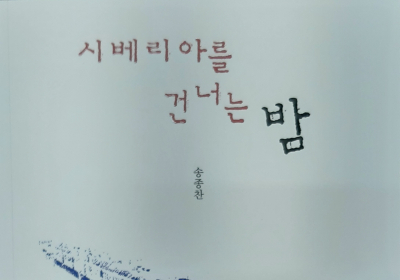 시베리아를
건너는 밤
송종찬